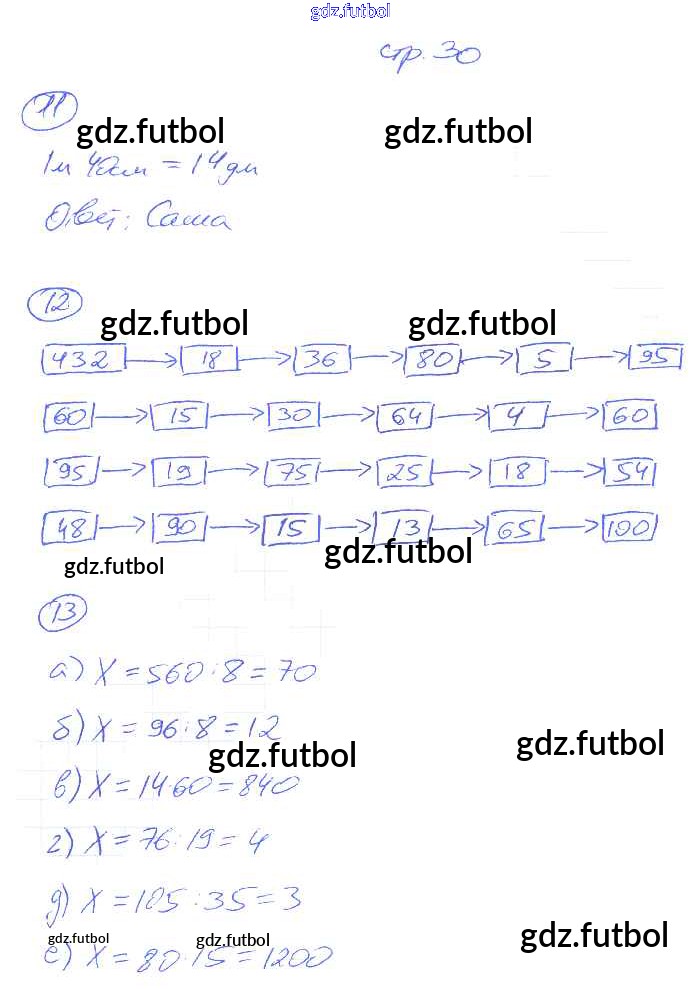 gdz.futbol
стр. 30
11
gdz.futbol gdz.futbol
1м 40см = 14дм
Ответ: Саша
12
gdz.futbol gdz.futbol
432 → 18 → 36 → 80 → 5 → 95
60 → 15 → 30 → 64 → 4 → 60
95 → 19 → 75 → 25 → 18 → 54
48 → 90 → 15 → 13 → 65 → 100
gdz.futbol gdz.futbol
13
а) X = 560 : 8 = 70
б) X = 96 : 8 = 12
gdz.futbol gdz.futbol
в) X = 14·60 = 840
г) X = 76 : 19 = 4
д) X = 105 : 35 = 3
gdz.futbol gdz.futbol gdz.futbol
е) X = 80·15 = 1200